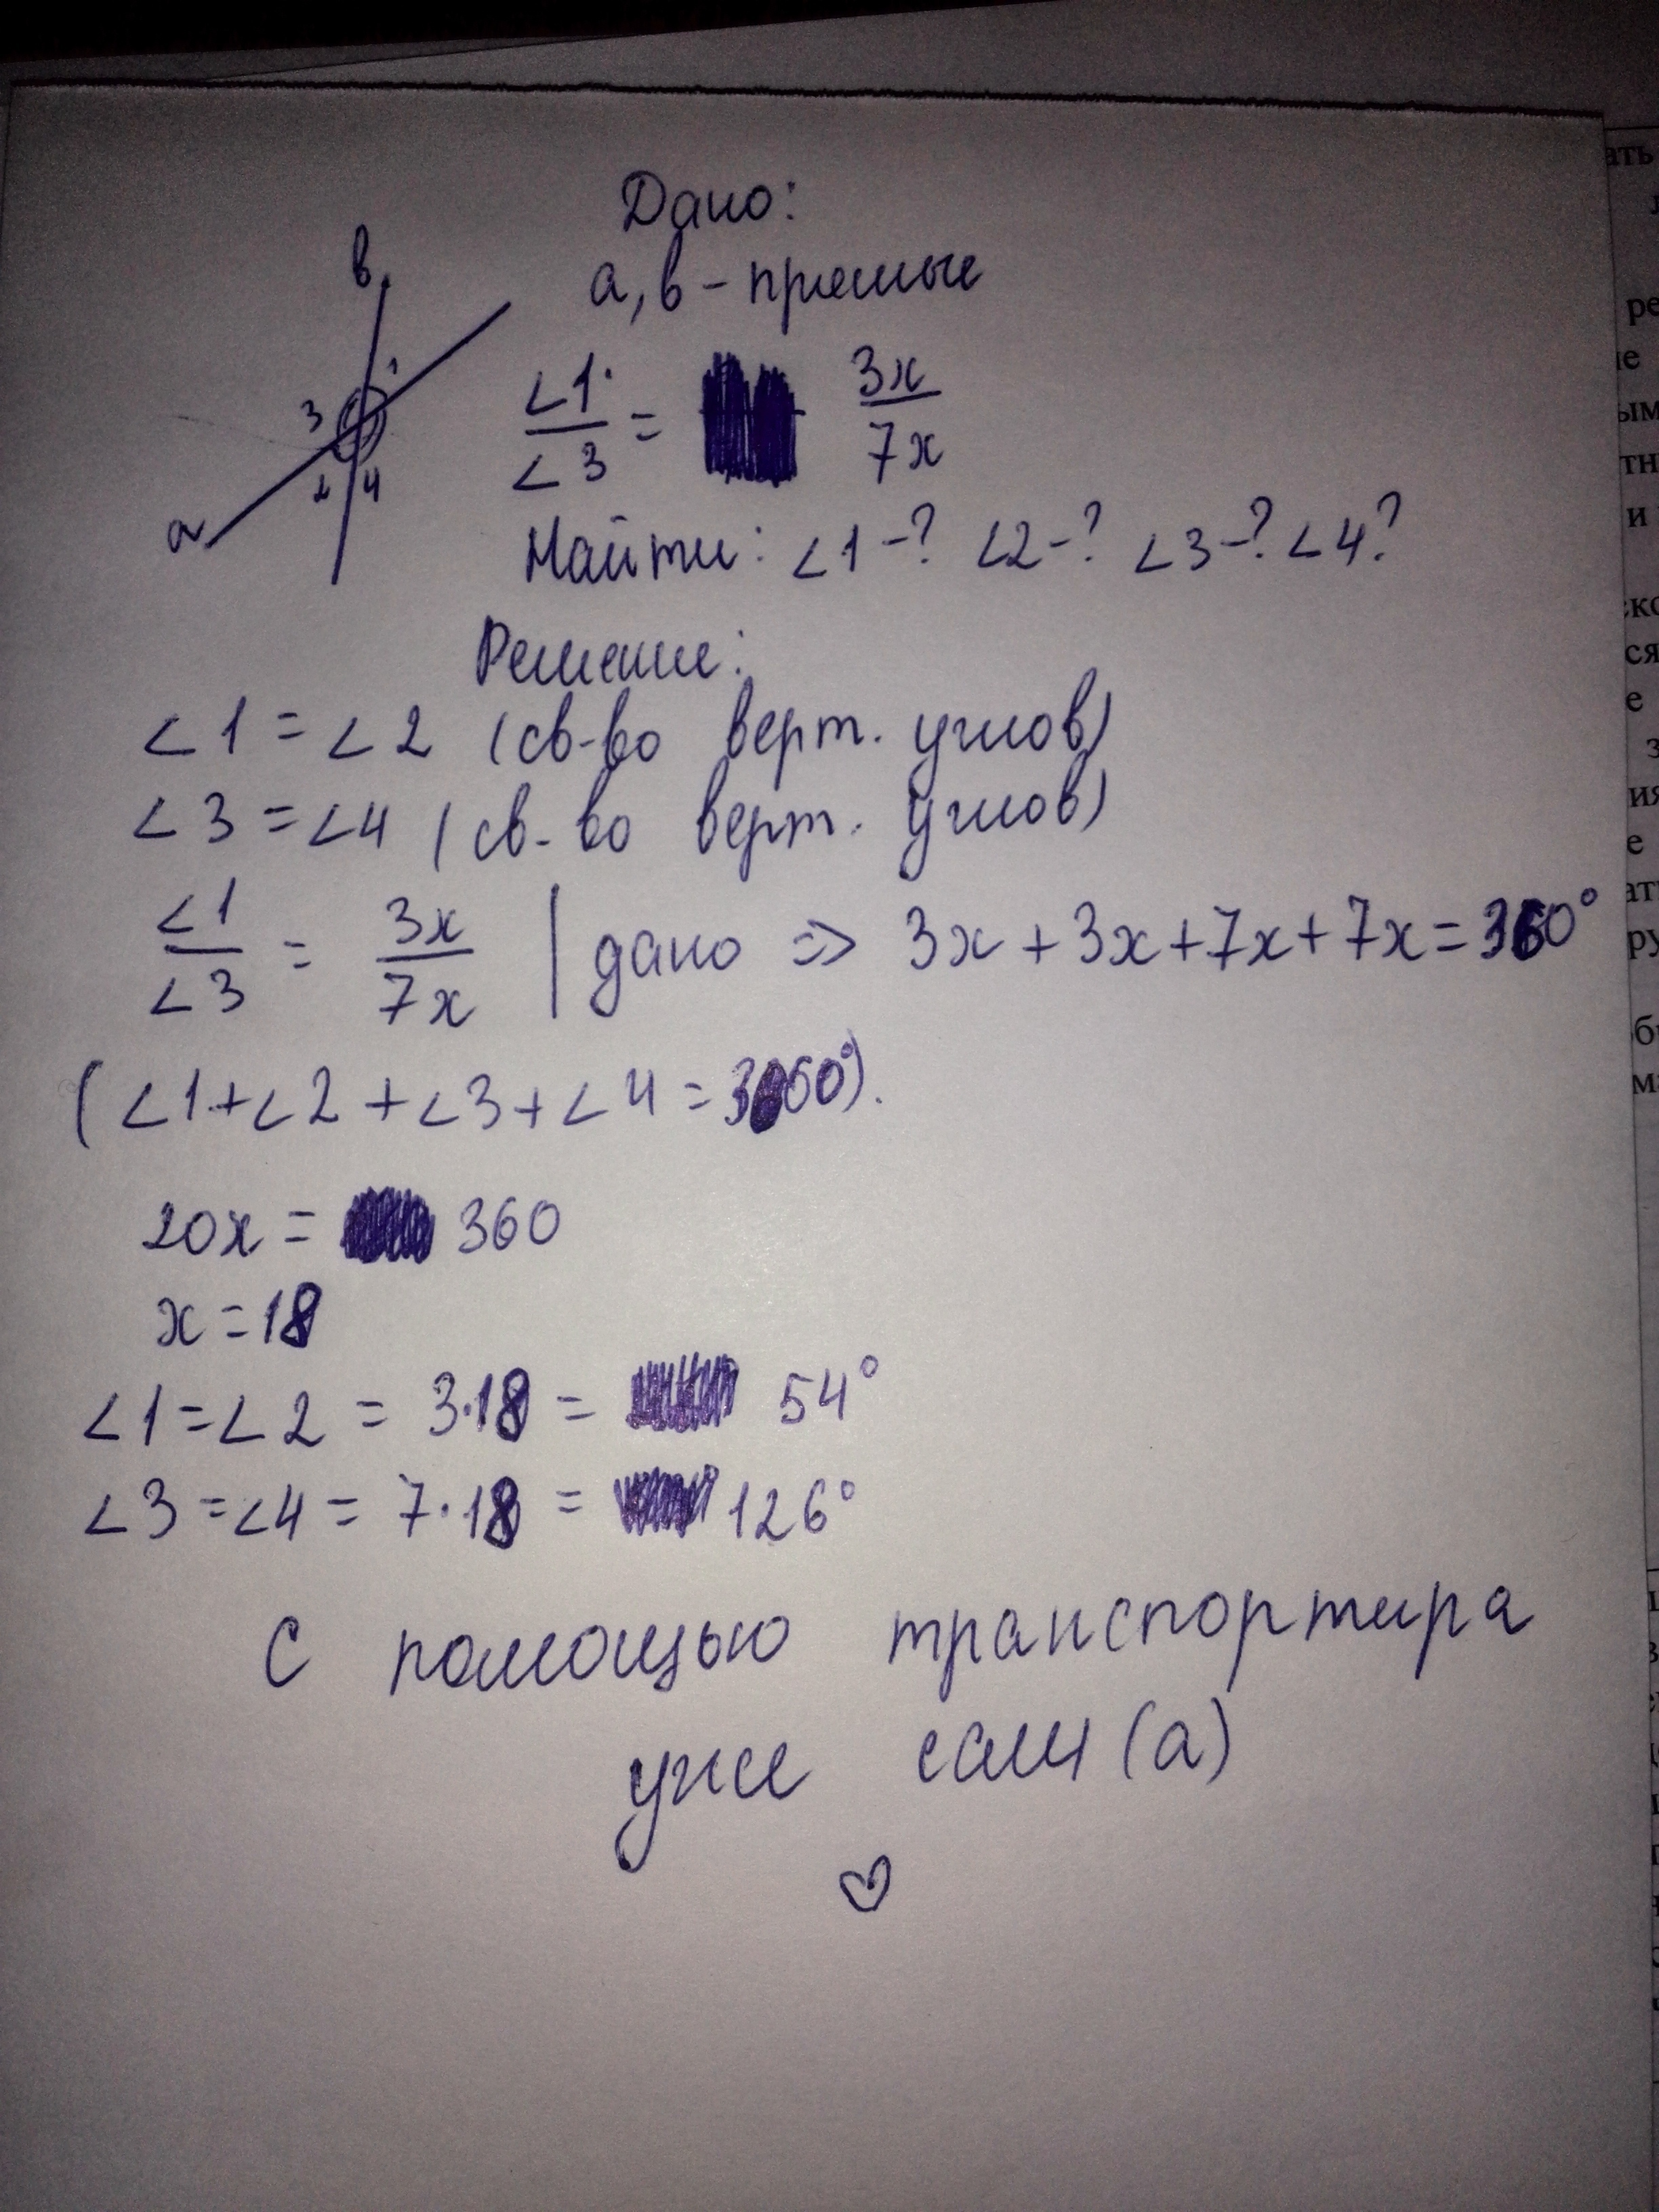 Дано:
а, в - прямые
∠1/∠3 = 3x/7x
Найти: ∠1-? ∠2-? ∠3-? ∠4?
в
а
1
3
2 4
Решение:
∠1 = ∠2 (св-во верт. углов)
∠3 = ∠4 (св-во верт. углов)
∠1/∠3 = 3x/7x | дано => 3x + 3x + 7x + 7x = 360°
(∠1 + ∠2 + ∠3 + ∠4 = 360°).
20x = 360
x = 18
∠1 = ∠2 = 3·18 = 54°
∠3 = ∠4 = 7·18 = 126°
С помощью транспортира
уже сам (а)